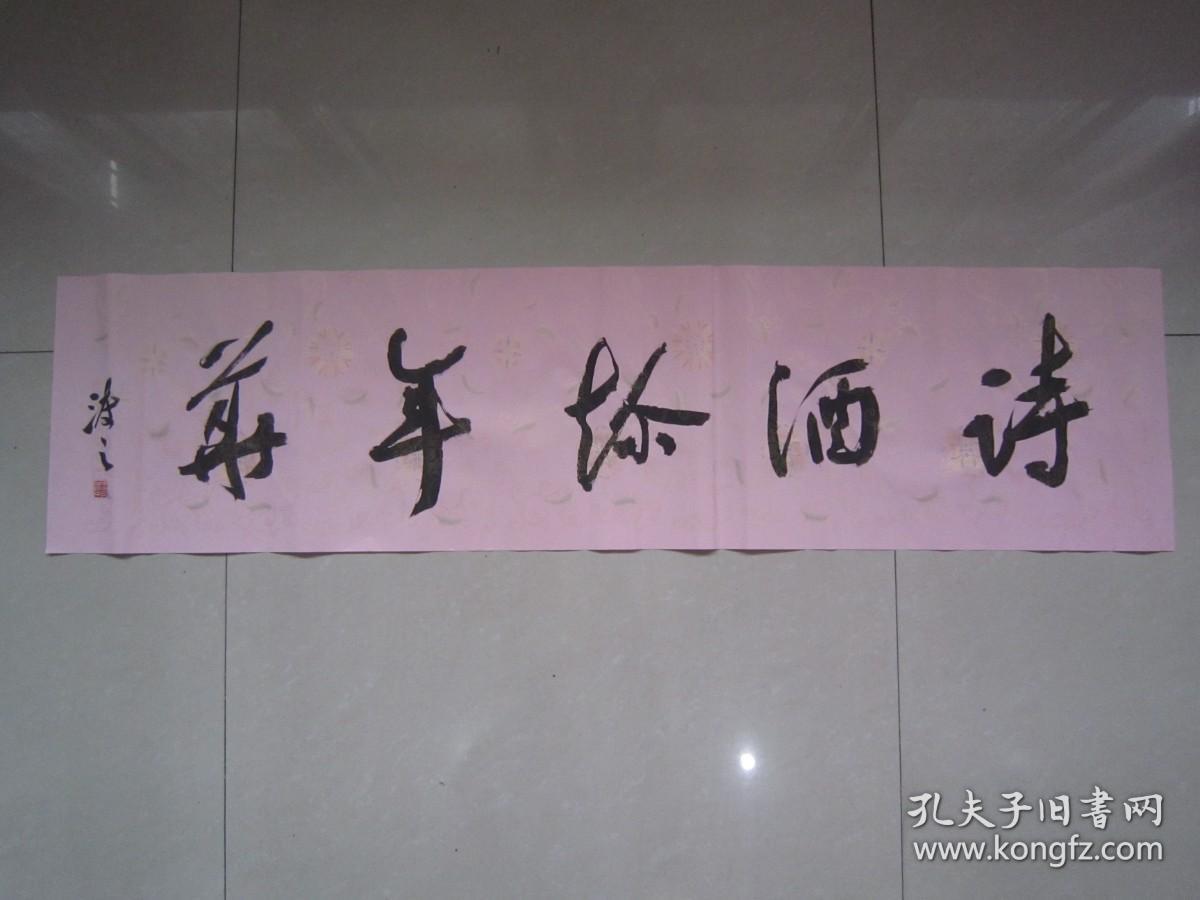 詩酒趁年華
波之
孔夫子旧書网
www.kongfz.com